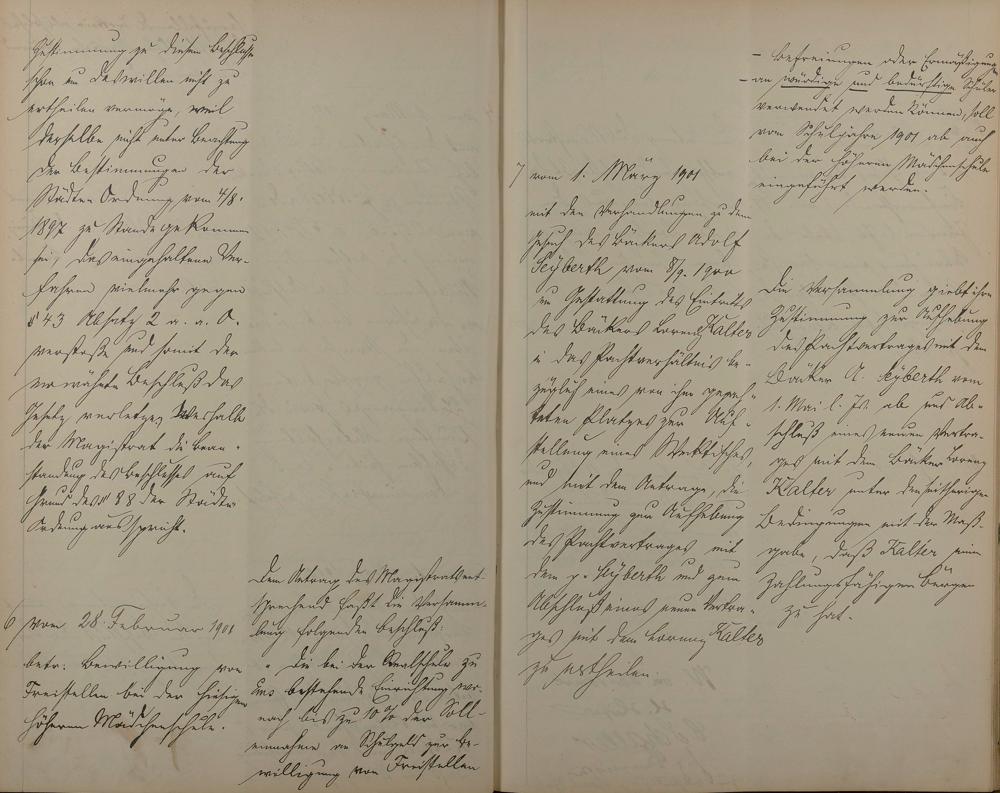 Zustimmung zu diesem Beschlusse
schon um deswillen nicht zu
ertheilen vermöge, weil
derselbe nicht unter Beachtung
der Bestimmungen der
Städte-Ordnung vom 4/8.
1897 zu Stande gekommen
sei, das eingehaltene Ver-
fahren vielmehr gegen
§ 43 Absatz 2 a. a. O.
verstoße und somit der
erwähnte Beschluß das
Gesetz verletze, weshalb
der Magistrat die Bean-
standung des Beschlusses auf
Grund des § 88 der Städte-
Ordnung ausspricht.
6 vom 28 Februar 1901
betr. Bewilligung von
Freistellen bei der hiesigen
höheren Mädchenschule.
Dem Antrag des Magistrats ent-
sprechend faßt die Versamm-
lung folgenden Beschluß:
" Die bei der Realschule zu
bestehende Einrichtung wo-
nach bis zu 10 % der Soll-
einnahme an Schulgeld zur Be-
willigung von Freistellen
- Befreiungen oder Ermäßigungen
- an würdige und bedürftige Schüler
verwendet werden können, soll
vom Schuljahre 1901 ab auch
bei der höheren Mädchenschule
eingeführt werden.
7 vom 1. März 1901
mit den Verhandlungen zu dem
Gesuch des Bäckers Adolf
Seyberth vom 8/9. 1900
um Gestattung des Eintritts
des Bäckers Lorenz Kalter
i das Pachtverhältnis be-
züglich eines von ihm gepach-
teten Platzes zur Auf-
stellung eines
und mit dem Antrage, die
Zustimmung zur Aufhebung
des Pachtvertrages mit
dem p. Seyberth und zum
Abschluß eines neuen Vertra-
ges mit dem Lorenz Kalter
zu ertheilen.
Die Versammlung giebt ihre
Zustimmung zur Aufhebung
des Pachtvertrages mit dem
Bäcker A. Seyberth vom
1. Mai l. Js. ab und Ab-
schluß eines neuen Vertra-
ges mit dem Bäcker Lorenz
Kalter unter den seitherigen
Bedingungen mit der Maß-
gabe, daß Kalter einen
zahlungsfähigen Bürgen
zu hat.